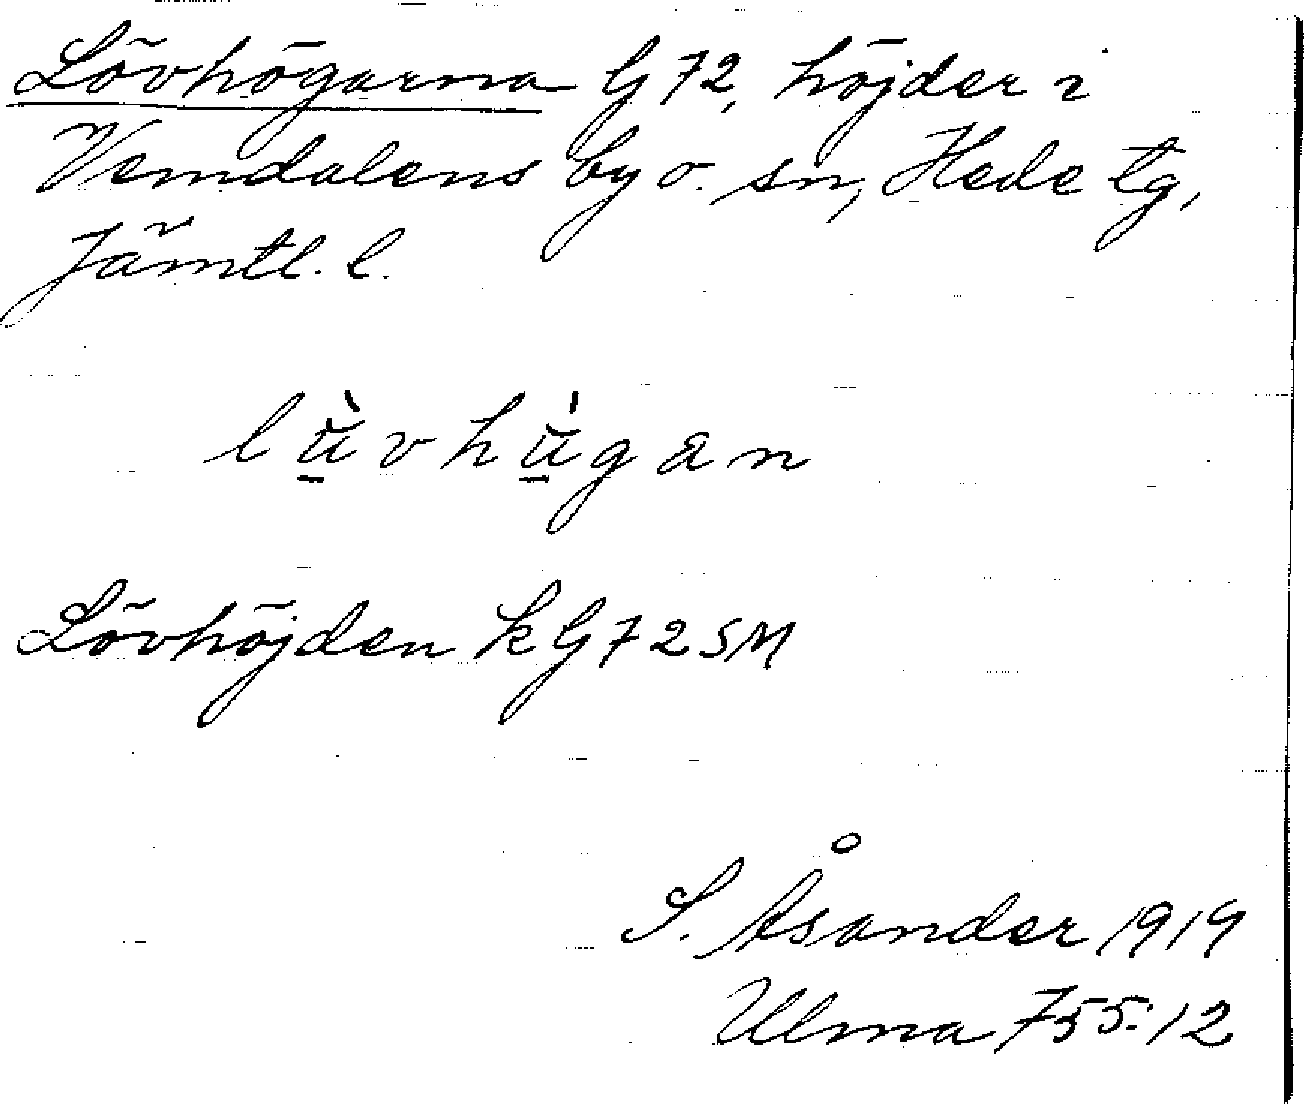 Lövhögarna G 72, höjder i
Vemdalens by o. sn, Hede tg,
Jämtl. l.
lùvhùgan
Lövhöjden k G 72 SM
S. Åsander 1919
Ulma 755:12